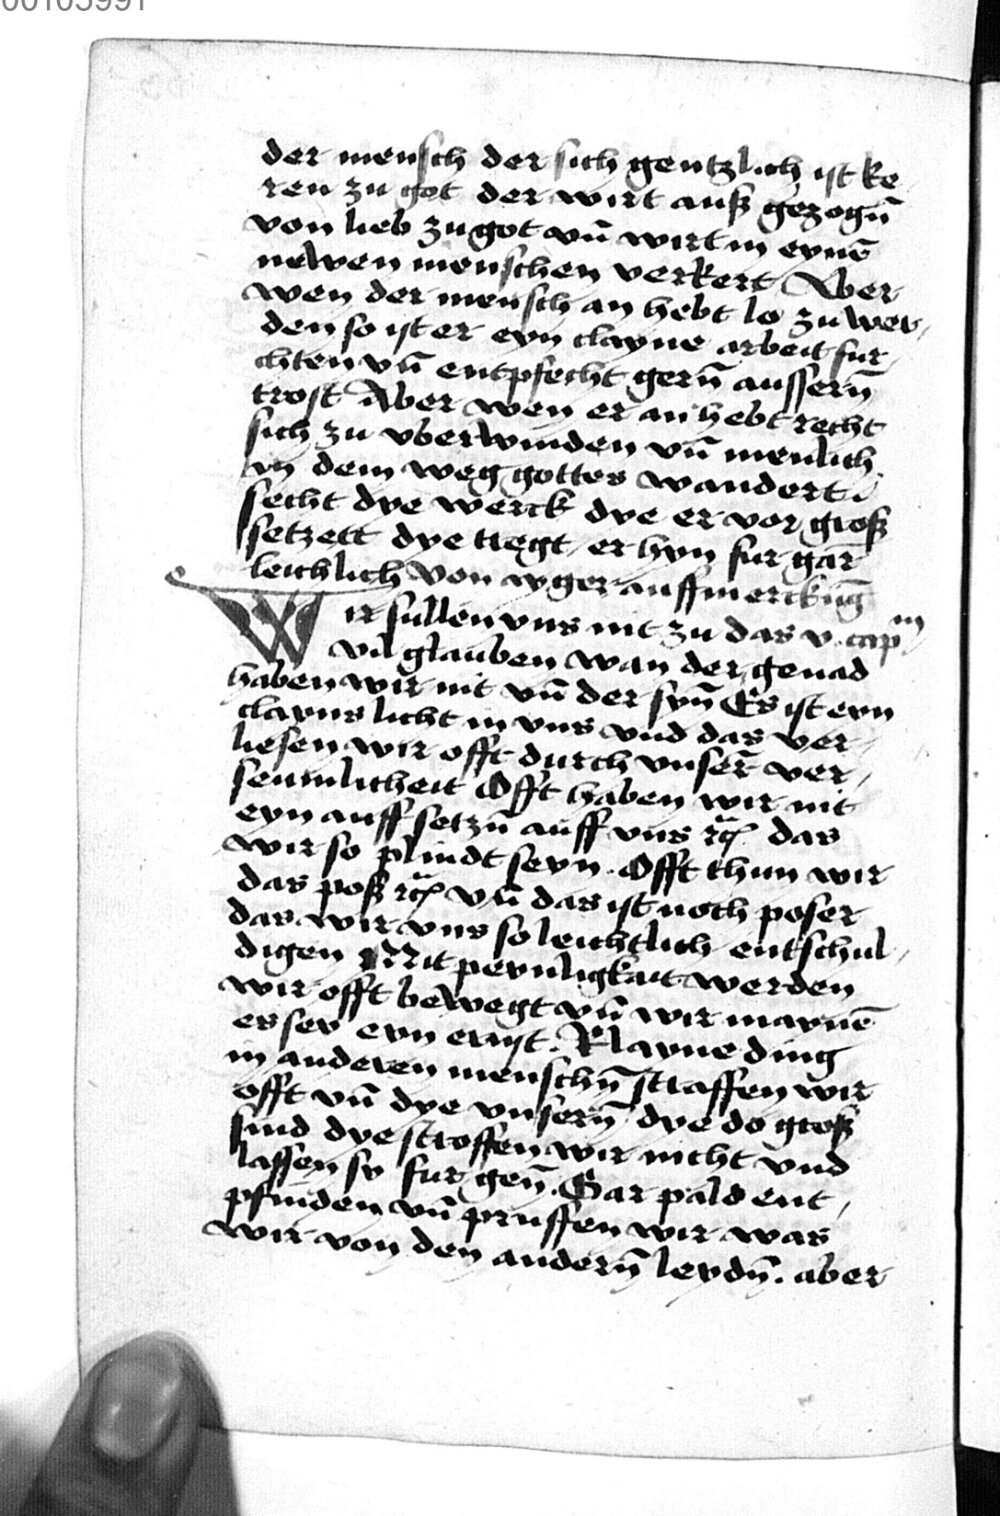 00103991
der mensch der sich gentzlich ist ke
ren zu got der wirt auß gezogn̄
von lieb zu got vn̄ wirt in eynē
newen menschen verkert Aber
wen der mensch an hebt lo zu wer,
den so ist er eyn clayne arbeit fur
chten vn̄ entpfecht gern̄ aussern̄
trost Aber wen er an hebt recht
sich zu vberwinden vn̄ menlich
yn dem weg gottes wandert
secht dye werck dye er vor groß
setzett dye tregt er hyn fur gar
leichlich Von ayger auffmerckūg
Wir sullen vns nit zu das v. capm
vil glauben wan der genad
haben wir nit vn̄ der syn̄ Es ist eyn
clayns licht in vns vnd das ver
liesen wir offt durch vnser̄ ver,
seumlicheit Offt haben wir nit
eyn auff setzn̄ auff vns rc̄ das
wir so plindt seyn. Offt thun wir
das poß rc̄ vn̄ das ist noch poser
das wir vns so leichtlich entschul,
digen Mit peynligkait werden
wir offt bewegt vn̄ wir maynē
es sey eyn ernst. Klayne ding
in anderen menschn̄ straffen wir
offt vn̄ dye vnsern̄ dye do groß
sind dye stroffen wir nicht vnd
lassen sy fur gen̄. Gar pald ent,
pfinden vn̄ pruffen wir was
wir von den andern̄ leydn̄. aber